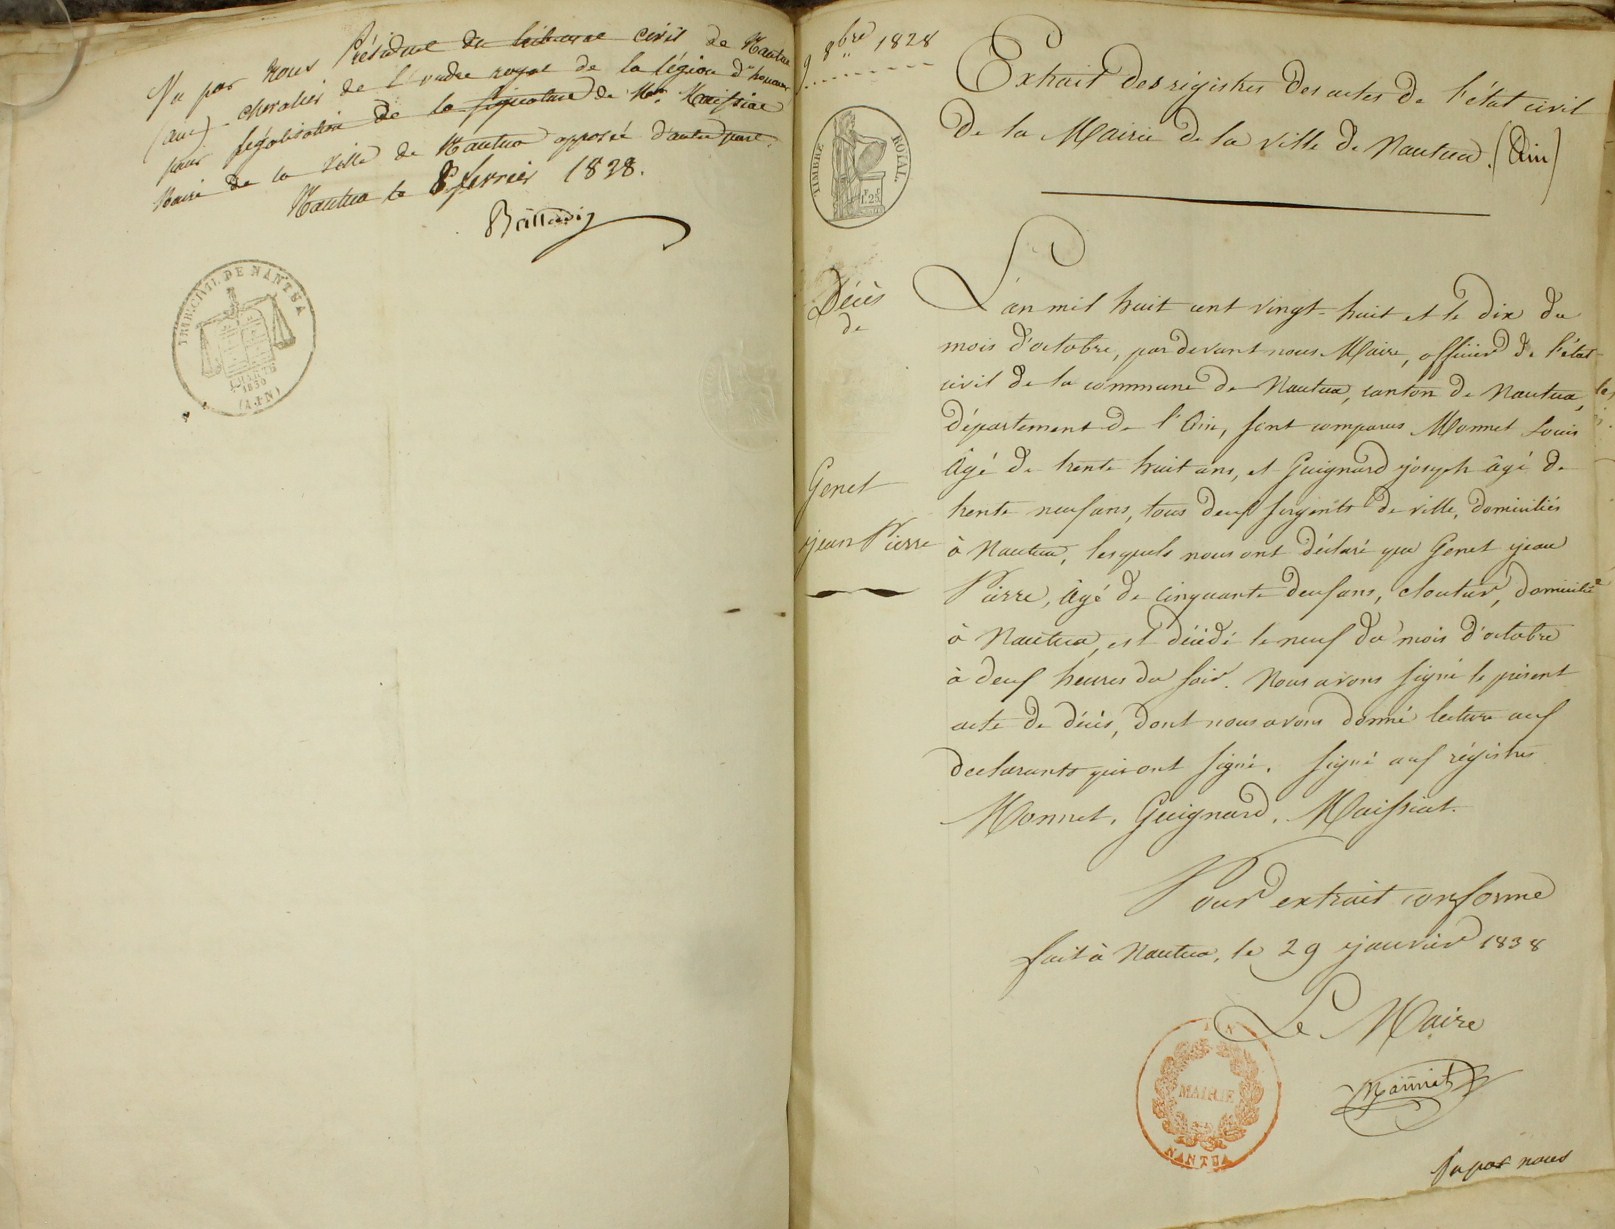 Vu par nous Président du tribunal civil de Nantua
(Ain) chevalier de l'ordre royal de la légion d'honneur
pour légalisation de la signature de Mr. Maissiat
Maire de la ville de Nantua apposée d'autre part.
Nantua le 8 février 1838.
TRIB. CIVIL DE NANTUA
CHARTE
1830
(AIN)
9 8bre 1828
TIMBRE ROYAL
Extrait des régistres des actes de l'état civil
de la Mairie de la ville de Nantua. (Ain)
Décès
de
Genet
jean Pierre
L'an mil huit cent vingt-huit et le dix du
mois d'octobre, pardevant nous Maire, officier de l'état-
civil de la commune de Nantua, canton de Nantua,
département de l'Ain, sont comparus Monnet Louis
âgé de trente huit ans, et Guignard joseph âgé de
trente neuf ans, tous deux sergents de ville, domiciliés
à Nantua, lesquels nous ont déclaré que Genet jean
Pierre, âgé de cinquante deux ans, cloutier, domicilié
à Nantua, est décédé le neuf du mois d'octobre
à deux heures du soir. Nous avons signé le présent
acte de décès, dont nous avons donné lecture aux
declarants qui ont signé. Signé aux régistres
Monnet, Guignard, Maissiat.
Pour extrait conforme
fait à Nantua, le 29 janvier 1838
Le Maire
MAIRIE
NANTUA
Vu par nous